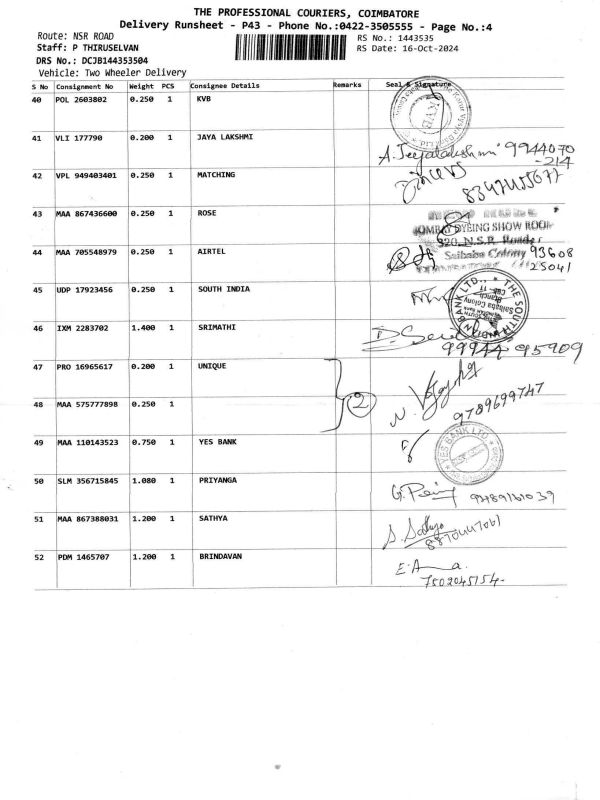 THE PROFESSIONAL COURIERS, COIMBATORE
Delivery Runsheet - P43 - Phone No.:0422-3505555 - Page No.:4
Route: NSR ROAD
RS No.: 1443535
Staff: P THIRUSELVAN
RS Date: 16-Oct-2024
DRS No.: DCJB144353504
Vehicle: Two Wheeler Delivery
S No Consignment No Weight PCS Consignee Details Remarks Seal & Signature
40 POL 2603802 0.250 1 KVB
KVB
41 VLI 177790 0.200 1 JAYA LAKSHMI
A. Jeyalakshmi 9944070
-214
42 VPL 949403401 0.250 1 MATCHING
8347455677
43 MAA 867436600 0.250 1 ROSE
DYEING SHOW ROOM
320, N.S.R.
44 MAA 705548979 0.250 1 AIRTEL
Saibaba Colony 93608
25041
45 UDP 17923456 0.250 1 SOUTH INDIA
THE SOUTH INDIAN BANK LTD.
Saibaba Colony
Branch
46 IXM 2283702 1.400 1 SRIMATHI
99944 95909
47 PRO 16965617 0.200 1 UNIQUE
2
48 MAA 575777898 0.250 1
9789699747
49 MAA 110143523 0.750 1 YES BANK
YES BANK LTD
50 SLM 356715845 1.080 1 PRIYANGA
51 MAA 867388031 1.200 1 SATHYA
S. Sathya
8870447061
52 PDM 1465707 1.200 1 BRINDAVAN
7502045154-